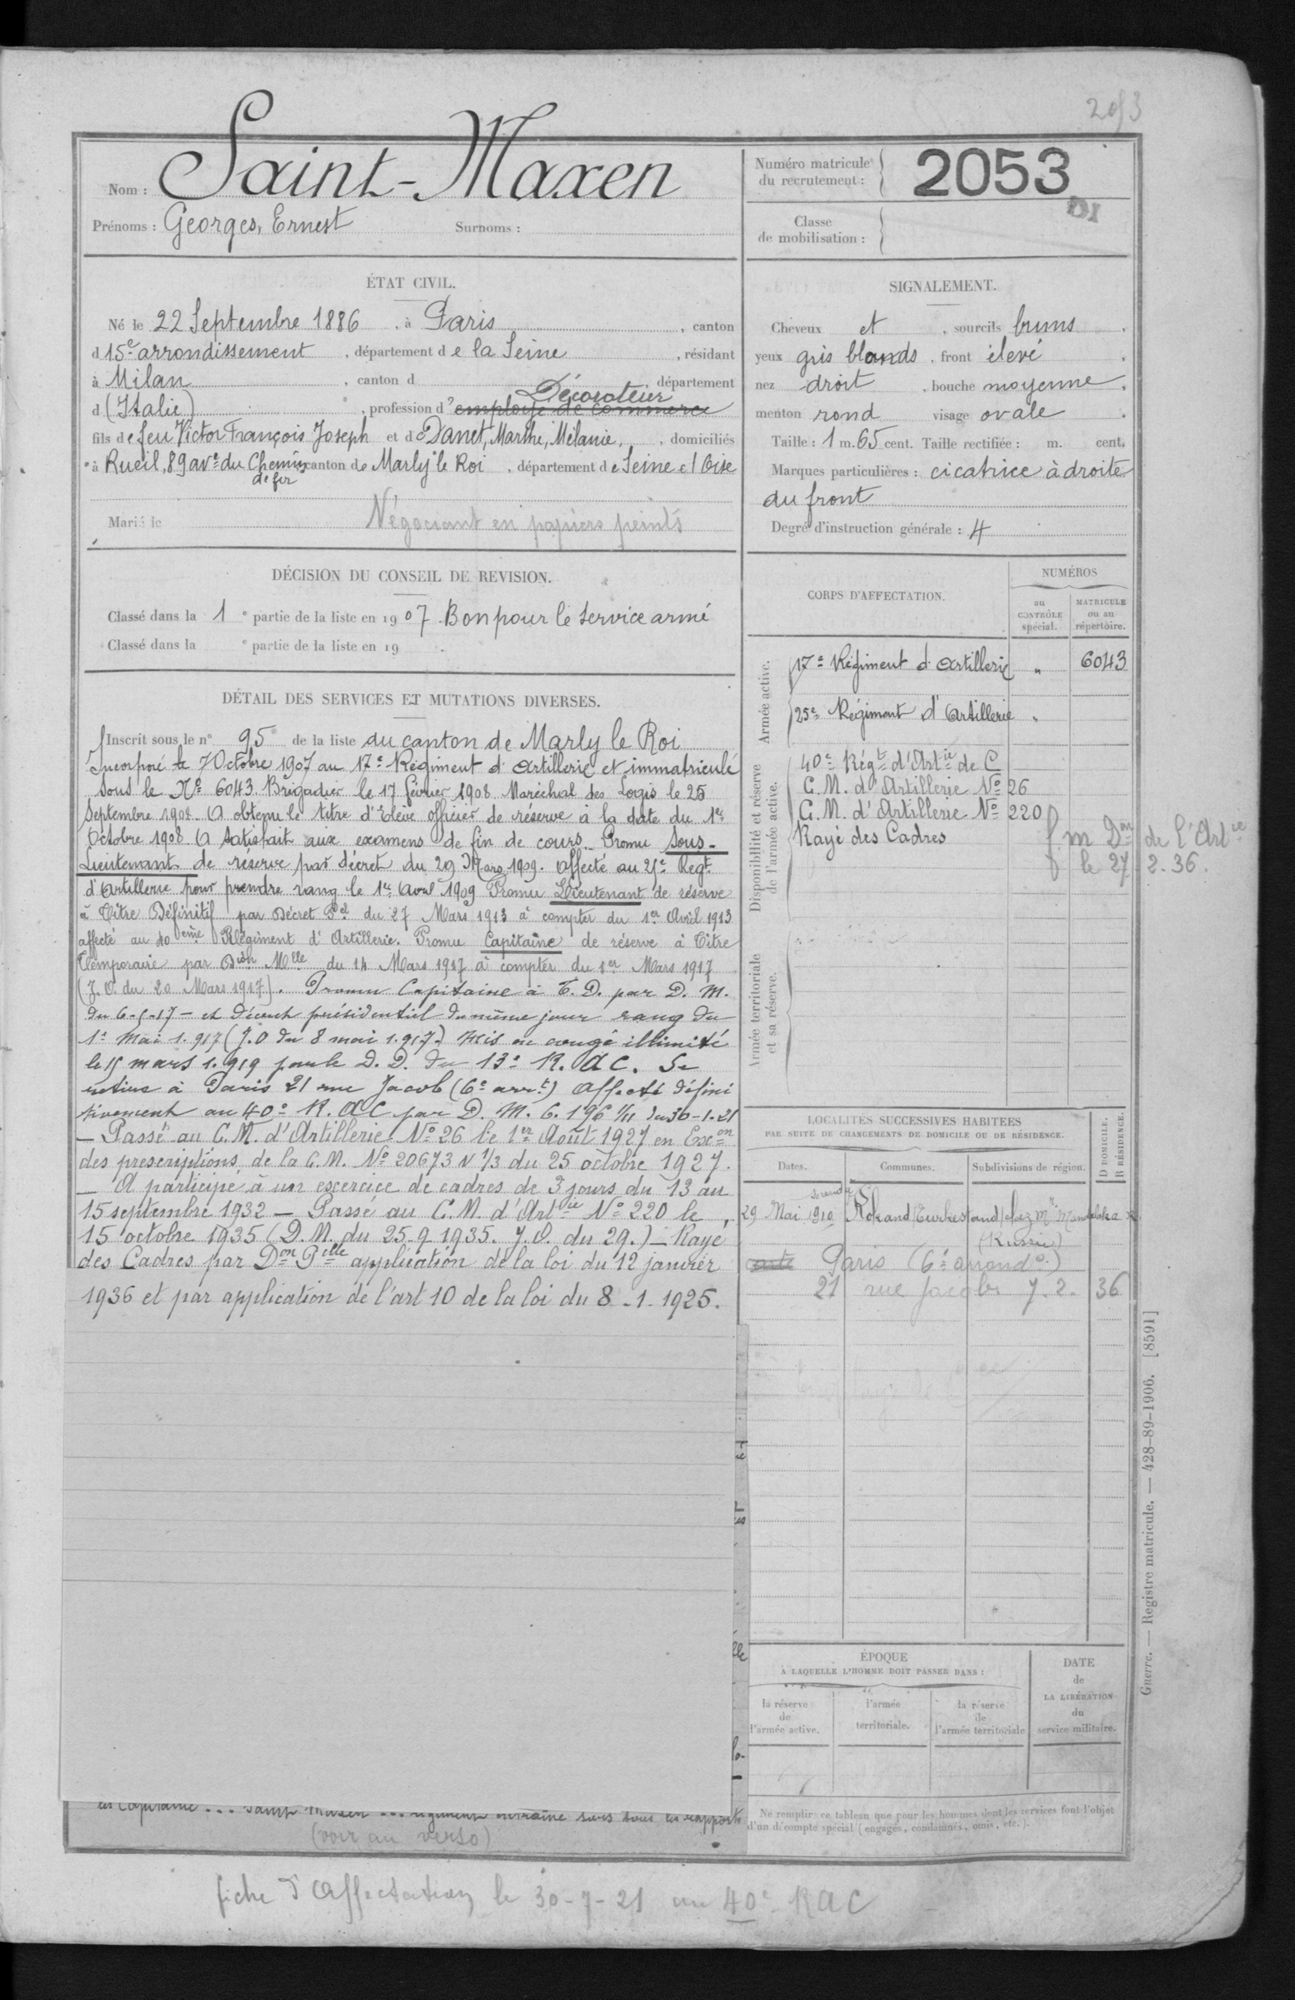 2053
Nom : Saint-Maxen
Prénoms : Georges, Ernest Surnoms :
Numéro matricule du recrutement : 2053
DI
Classe de mobilisation :
ÉTAT CIVIL.
Né le 22 Septembre 1886, à Paris, canton
d 15e arrondissement, département de la Seine, résidant
à Milan, canton d , département
d (Italie), profession d' employé de commerce Décorateur
fils de feu Victor François Joseph et de Danet, Marthe, Mélanie, domiciliés
à Rueil, 89 ave du Chemin de fer canton de Marly le Roi, département de Seine et Oise
Marié le
Négociant en papiers peints
SIGNALEMENT.
Cheveux et , sourcils bruns
yeux gris blonds, front élevé
nez droit, bouche moyenne
menton rond visage ovale
Taille : 1 m. 65 cent. Taille rectifiée : m. cent.
Marques particulières : cicatrice à droite
du front
Degré d'instruction générale : 4
DÉCISION DU CONSEIL DE REVISION.
Classé dans la 1e partie de la liste en 1907. Bon pour le service armé
Classé dans la e partie de la liste en 19 .
DÉTAIL DES SERVICES ET MUTATIONS DIVERSES.
Inscrit sous le n° 95 de la liste du canton de Marly le Roi
Incorporé le 7 Octobre 1907 au 17e Régiment d'Artillerie et immatriculé
sous le No 6043. Brigadier le 17 février 1908. Maréchal des Logis le 25
Septembre 1908. A obtenu le titre d'Elève officier de réserve à la date du 1er
Octobre 1908. A satisfait aux examens de fin de cours. Promu Sous-
Lieutenant de réserve par décret du 29 Mars 1909. affecté au 25e Régt
d'Artillerie pour prendre rang le 1er Avril 1909 Promu Lieutenant de réserve
à Titre Définitif par Décret Pel du 27 Mars 1913 à compter du 1er Avril 1913
affecté au 40eme Régiment d'Artillerie. Promu Capitaine de réserve à Titre
Temporaire par Dion Melle du 14 Mars 1917 à compter du 1er Mars 1917
(J.O. du 20 Mars 1917). Promu Capitaine à T.D. par D.M.
du 6-5-17 - et décret présidentiel du même jour rang du
1er Mai 1.917 (J.O du 8 mai 1.917.) Mis en congé illimité
le 15 mars 1.919 par le D.D. du 13e R.A.C. Se
retire à Paris 21 rue Jacob (6e arrt) Affecté défini
tivement au 40e R.A.C par D.M. C. 196 1/11 du 30-1-21
— Passé au C.M. d'Artillerie No 26 le 1er Août 1927 en Exon
des prescriptions de la C.M. No 20673 N 1/3 du 25 octobre 1927.
— A participé à un exercice de cadres de 3 jours du 13 au
15 septembre 1932 — Passé au C.M. d'Artie No 220 le
15 octobre 1935 (D.M. du 25-9 1935. J.O. du 29.) — Rayé
des Cadres par Don Pelle application de la loi du 12 janvier
1936 et par application de l'art 10 de la loi du 8-1-1925.
(voir au verso)
fiche d'Affectation le 30-7-21 au 40e RAC
CORPS D'AFFECTATION.
NUMÉROS
au CONTRÔLE spécial.
MATRICULE ou au répertoire.
Armée active.
17e Régiment d'Artillerie " 6043
25e Régiment d'Artillerie "
Disponibilité et réserve de l'armée active.
40e Régt d'Artie de C
C.M. d'Artillerie No 26
C.M. d'Artillerie No 220
Rayé des Cadres
de l'Artie
le 27 2.36.
Armée territoriale et sa réserve.
LOCALITÉS SUCCESSIVES HABITÉES
PAR SUITE DE CHANGEMENTS DE DOMICILE OU DE RÉSIDENCE.
Dates. Communes. Subdivisions de région. D DOMICILE. R RÉSIDENCE.
29 Mai 1910 Kokand (Turkestand) chez Mr
(Russie)
Paris (6e arrondt)
21 rue Jacob 7.2.36
ÉPOQUE
À LAQUELLE L'HOMME DOIT PASSER DANS :
la réserve de l'armée active.
l'armée territoriale.
la réserve de l'armée territoriale
DATE de LA LIBÉRATION du service militaire.
Ne remplir ce tableau que pour les hommes dont les services font l'objet
d'un décompte spécial (engagés, condamnés, omis, etc.).
Guerre. — Registre matricule. — 428-89-1906. [8591]